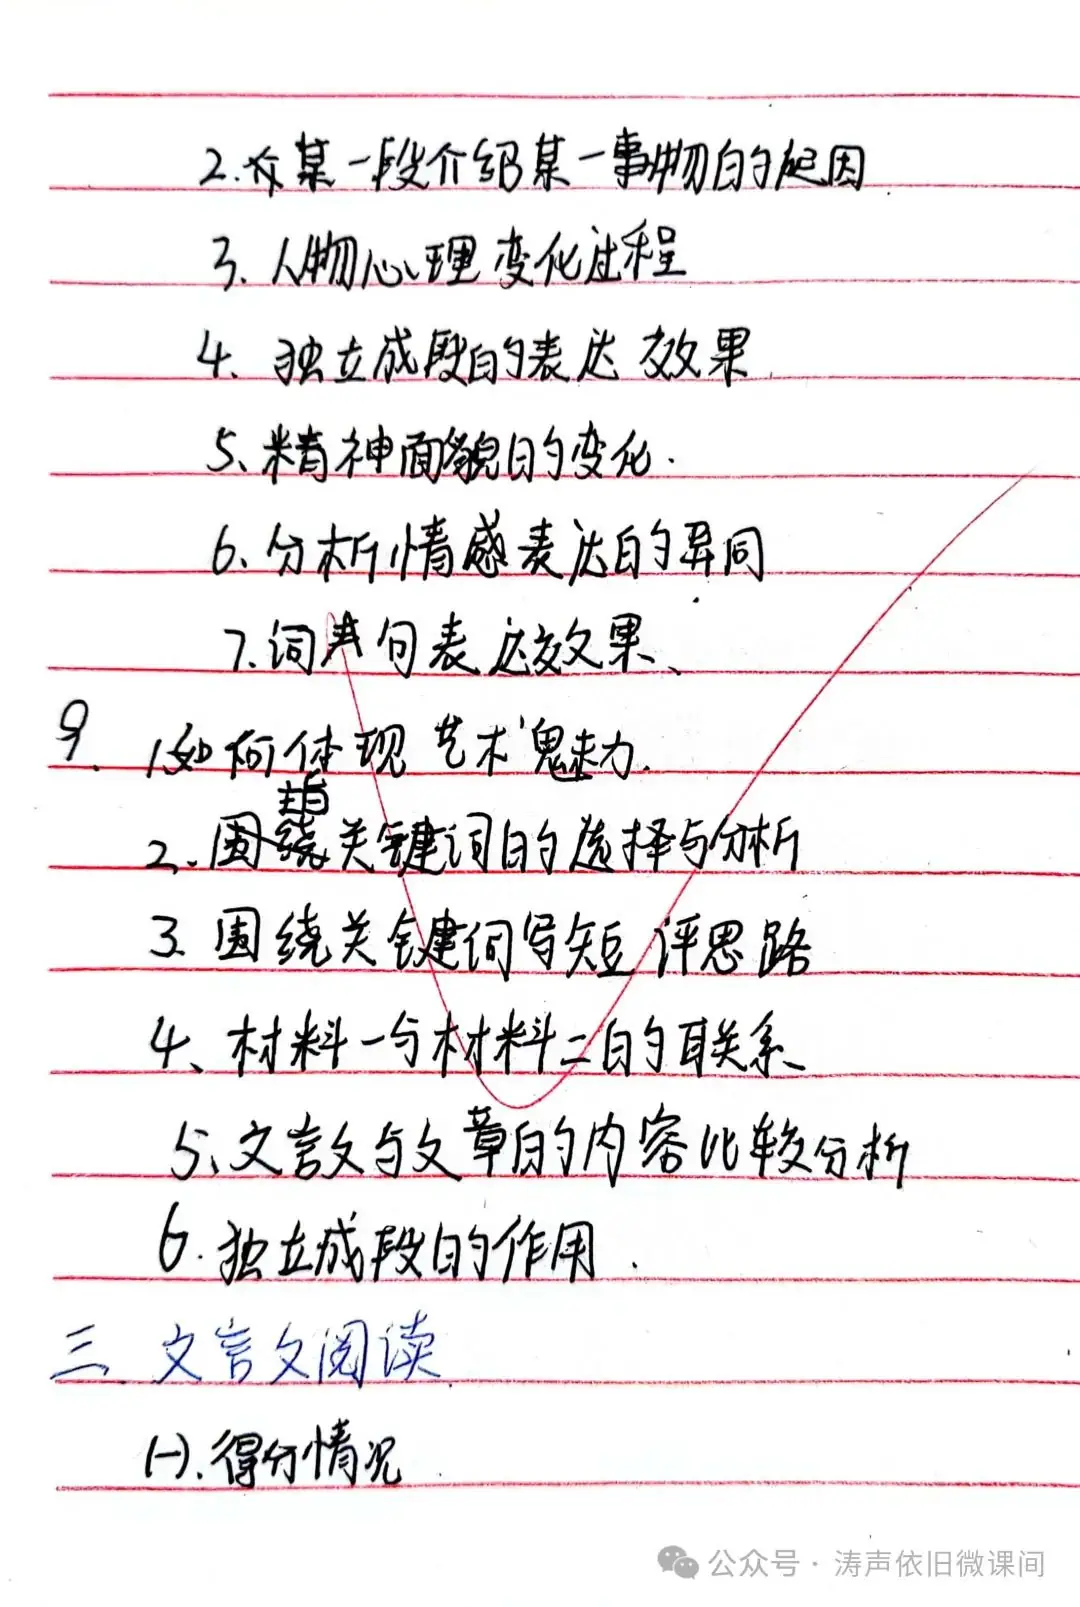 2.某一段介绍某一事物的起因
3.人物心理变化过程
4、独立成段的表达效果.
5、精神面貌的变化.
6.分析情感表达的异同
7.词句表达效果、
9.
1如何体现艺术魅力.
2、围绕关键词的选择与分析
3.围绕关键词写短评思路
4、材料一与材料二的联系、
5、文言文与文章的内容比较分析
6.独立成段的作用.
三、文言文阅读
(一).得分情况
公众号·涛声依旧微课间